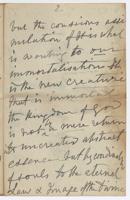 2.
but the conscious asse
mulation of it is what
is wanting to our
immortalisation the
is the new creature
that is immortal
the Kingdom of God
is not a mere return
to uncreated abstract
essence but
of souls to the eternal
Law & Image of the Divine